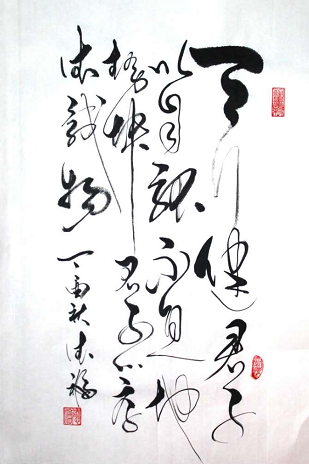 天行健君子
以自強不息地
勢坤君子以厚
德載物
丁酉秋德福